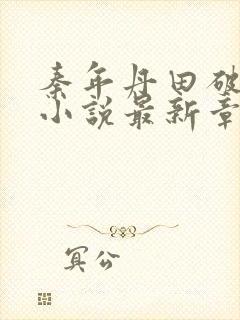 秦年丹田破
小说最新章
冥公